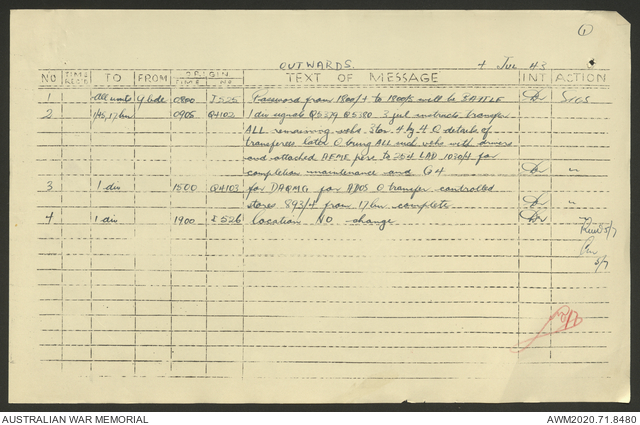 ①
OUTWARDS. 4 Jul 43
NO TIME REC'D TO FROM ORIGIN TIME NO TEXT OF MESSAGE INT ACTION
1 All units 4 bde 0800 I525 Password from 1800/4 to 1800/5 will be SATTLE
2 1/45, 17 bn 0905 Q4102 1 div signals Q5379 Q5380 3 jul instructs transfer
ALL remaining vehs 3 bn 4 by 4 O details of
transferees later O bring ALL such vehs with drivers
and attached AEME pers to 254 LAD 1030/4 for
completion maintenance and G4
3 1 div 1500 Q4103 for DAQMG for ADOS O transfer controlled
stores 893/4 from 17 bn complete.
4 1 div 1900 I526 Location NO change
5/7
5/7
AUSTRALIAN WAR MEMORIAL AWM2020.71.8480